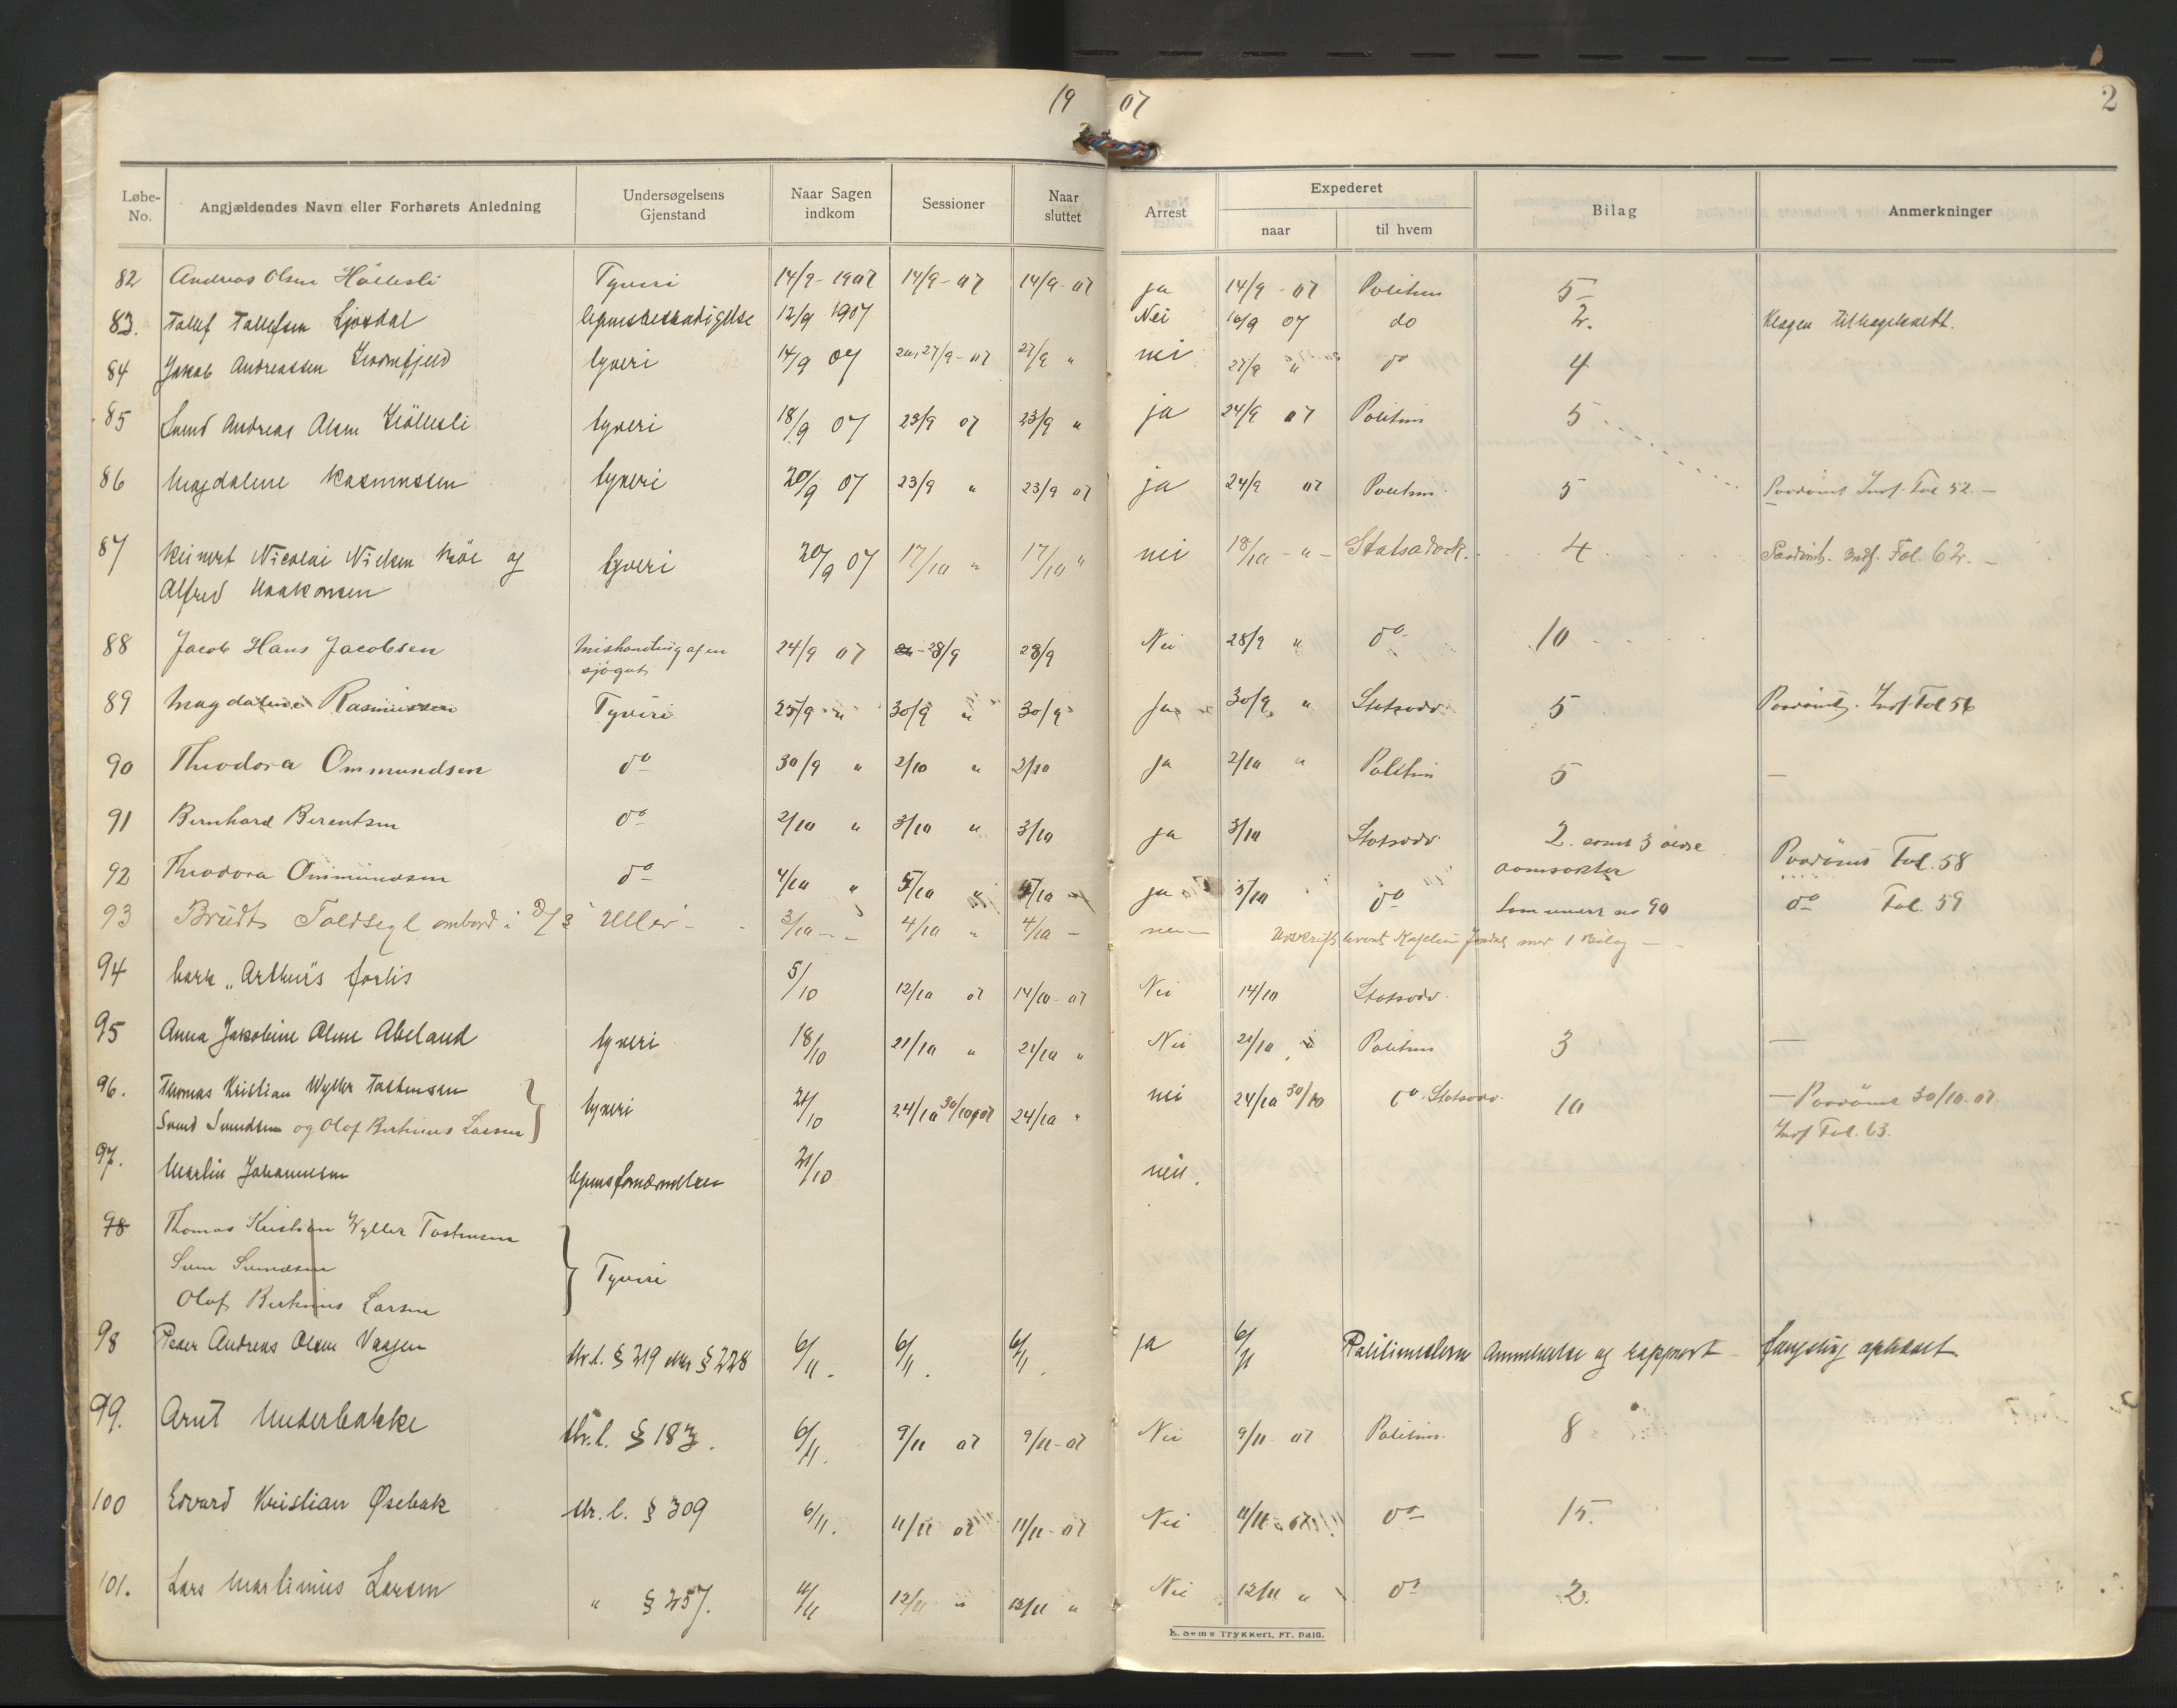 19 07
2
Løbe-No. Angjældendes Navn eller Forhørets Anledning Undersøgelsens Gjenstand Naar Sagen indkom Sessioner Naar sluttet Arrest Expederet naar til hvem Bilag Anmerkninger
82 Andreas Olsen Hållesli Tyveri 14/9-1907 14/9-07 14/9-07 ja 14/9-07 Politim 5
83. Tollef Tollefsen 12/9 1907 Nei 16/9 07 do 2. Klagen tilbagekaldt.
84 Jakob Andreassen tyveri 14/9 07 27/9-07 27/9 " nei 27/9 " do 4
85 Svend Andreas Olsen tyveri 18/9 07 23/9 07 23/9 " ja 24/9 07 Politim 5
86 Magdalene Rasmussen tyveri 20/9 07 23/9 " 23/9 07 ja 24/9 07 Politim. 5 Paadømt Fol 52.-
87 Nicolai Nielsen og tyveri 20/9 07 17/10 " 17/10 " nei 18/10 - " - Statsadvok. 4 Paadømt. Fol. 62.-
Alfred Haakonsen
88 Jacob Hans Jacobsen Mishandling af en 24/9 07 28/9 28/9 Nei 28/9 " do 10
sjøgut
89 Magdalene Rasmussen Tyveri 25/9 " 30/9 " 30/9 Ja 30/9 " Statsadv. 5 Paadømt. Fol 56
90 Theodora Ommundsen do 30/9 " 2/10 " 2/10 ja 2/10 " Politim 5 —
91 Bernhard Berentsen do 2/10 " 3/10 " 3/10 ja 3/10 Statsadv. 2. samt 3 ældre
domsakter Paadømt Fol. 58
92 Theodora Ommundsen do 4/10 " 5/10 " 5/10 ja 5/10 do no 90 do Fol. 59
93 Brudt Toldsegl ombord i D/S "Uller" 3/10 - - 4/10 " 4/10 - nei Udskrift med 1 Bilag —
94 bark "Arthur"s forlis 5/10 12/10 07 14/10-07 Nei 14/10 Statsadv.
95 Anna Jakobine Olsen Abeland tyveri 18/10 21/10 " 21/10 " Nei 21/10 " Politim 3 —
96. Thomas Kristian Wyller Tostensen tyveri 21/10 24/10 30/10 07 24/10 " nei 24/10 30/10 do. Statsadv. 10 — Paadømt 30/10.07
Svend Svendsen og Olaf Berthinius Larsen Fol. 63.
97. Martin Johannesen 21/10 nei.
98 Thomas Kristian Wyller Tostensen
Sven Svendsen Tyveri
Olaf Berthinius Larsen
98 Peder Andreas Olsen Vaagen Str. l. § 219 eller § 228 6/11. 6/11. 6/11. ja 6/11 Politimesteren Anmeldelse og rapport fængsling ophævet.
99. Arnt Underbakke Str. l. § 183. 6/11. 9/11 07 9/11-07 Nei 9/11 07 Politim. 8
100 Edvard Kristian Øsebak Str. l. § 309 6/11. 11/11 07 11/11-07 Nei 11/11-07 do 15.
101. Lars Martinius Larsen " § 257. 11/11 12/11 " 12/11 " Nei 12/11 " do 2.
E. Sems Trykkeri, Fr. hald.